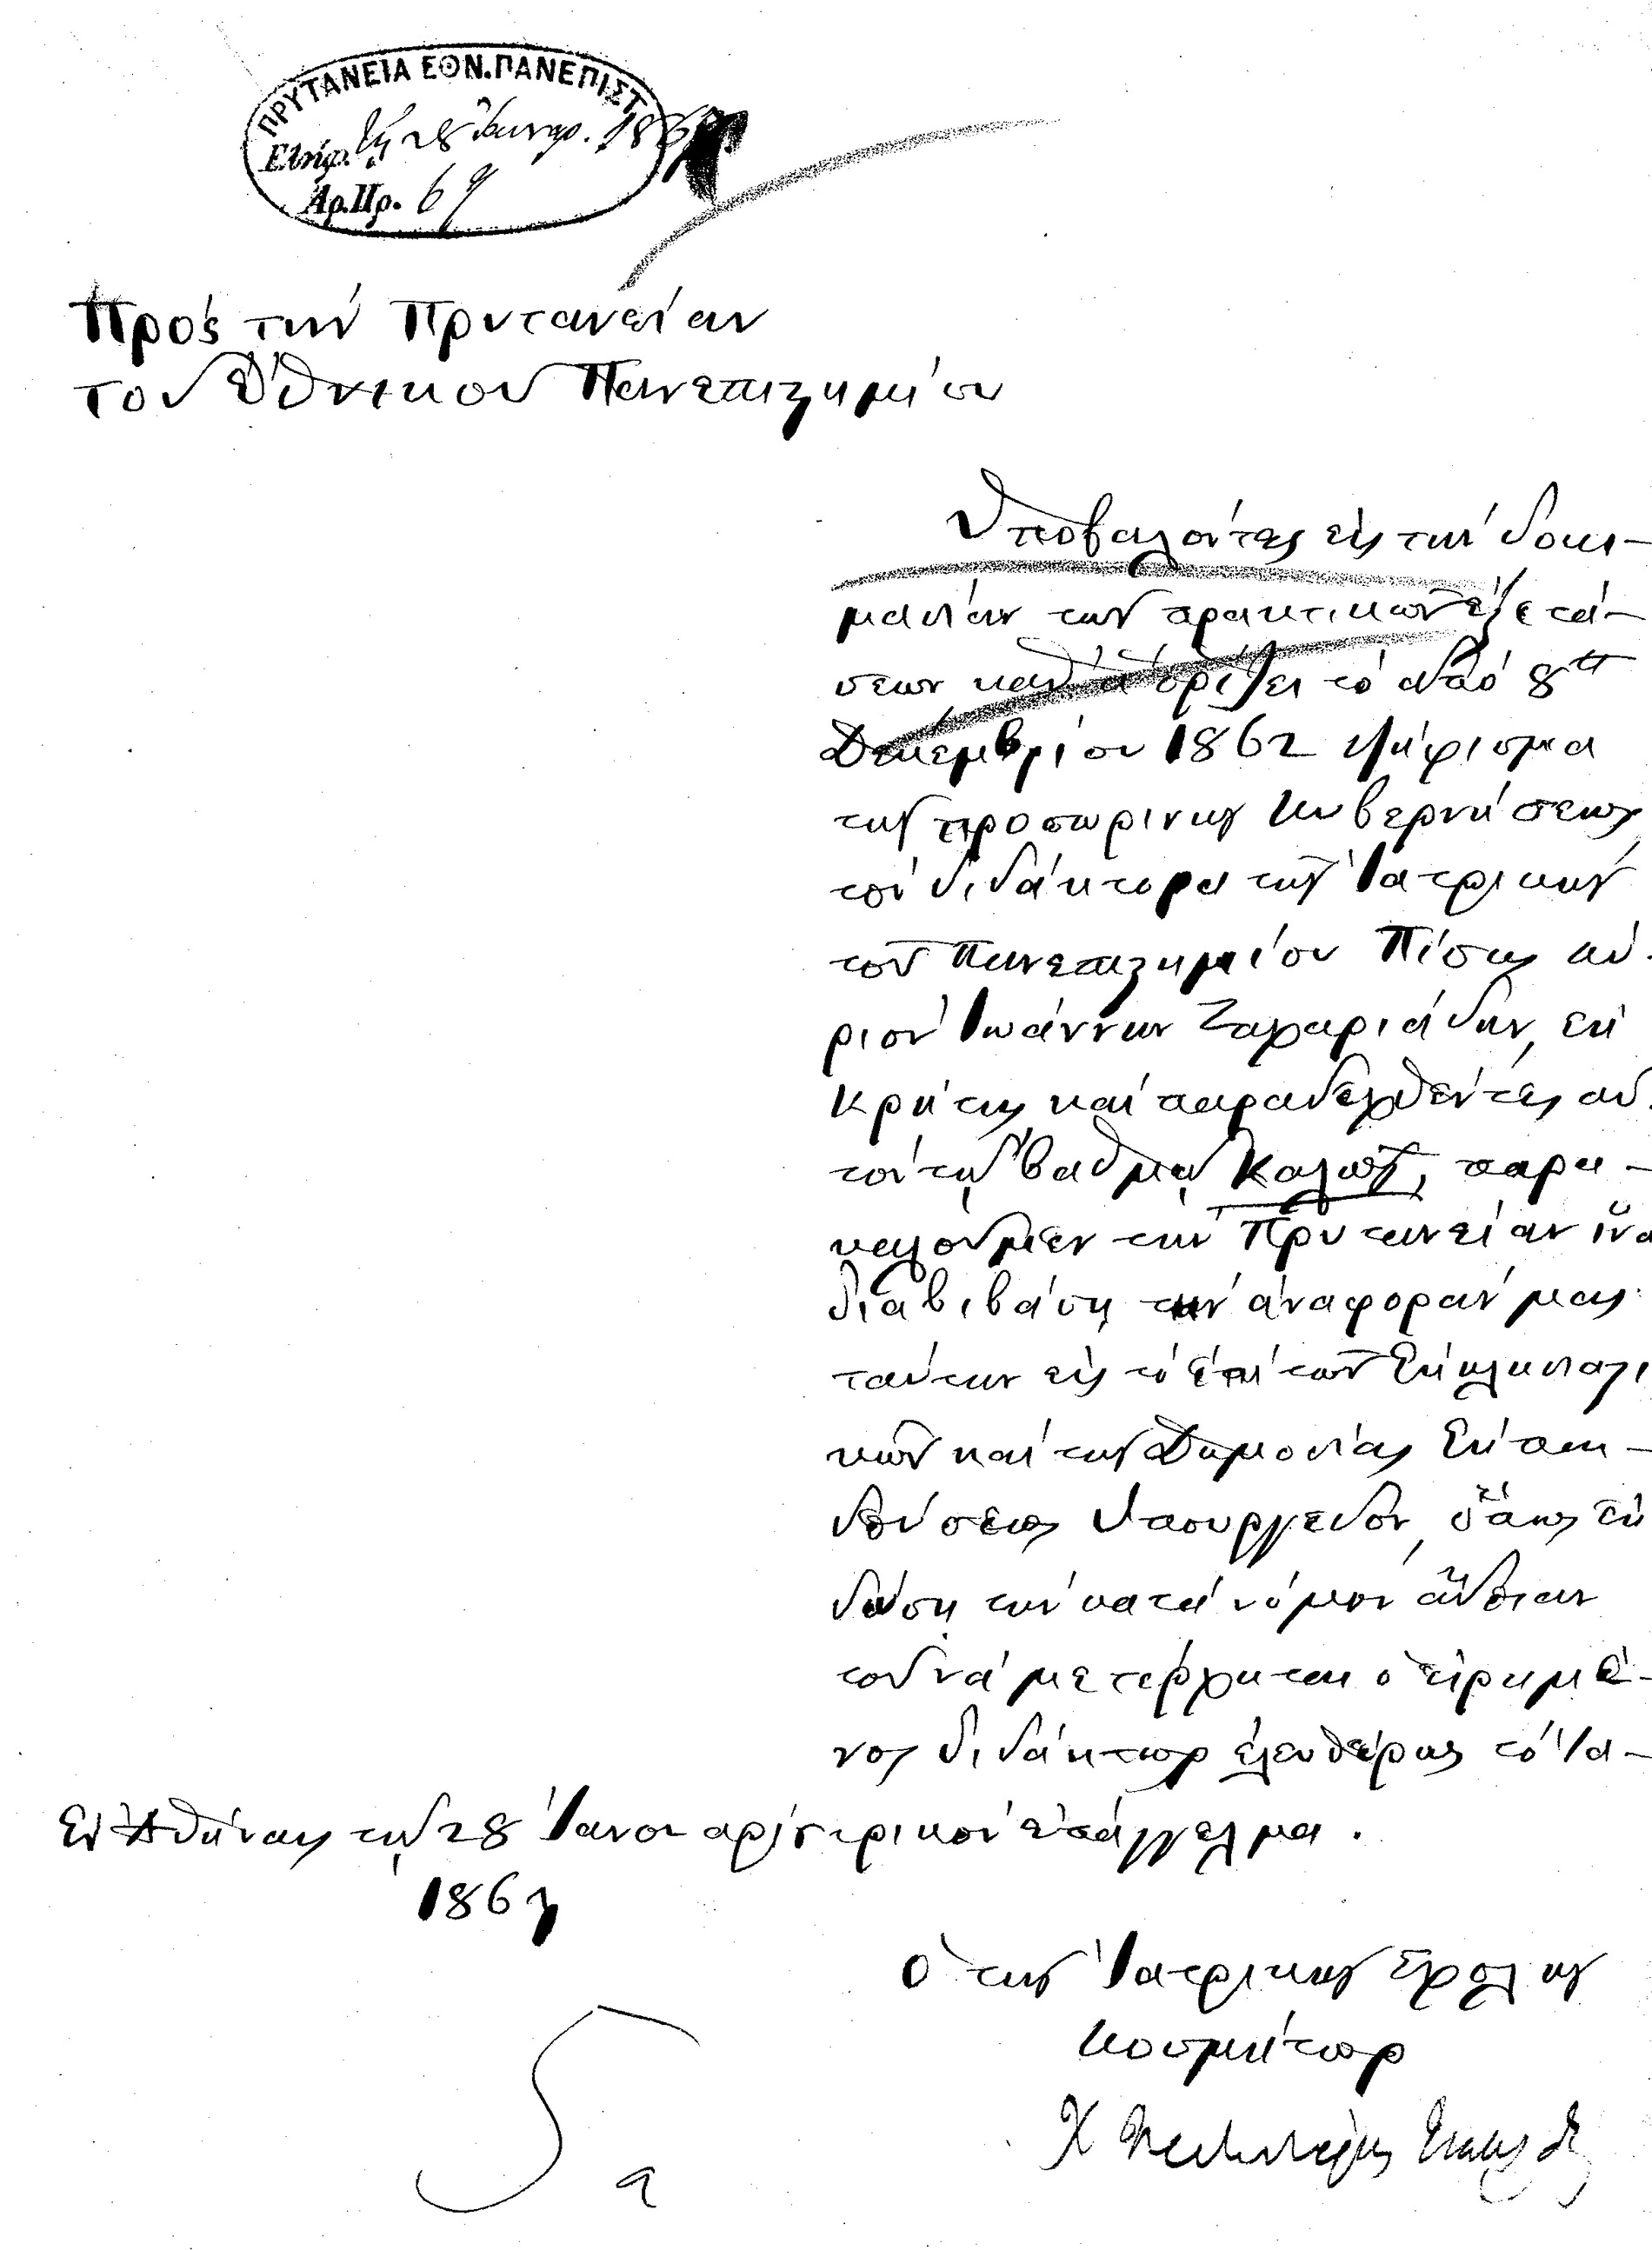 ΠΡΥΤΑΝΕΙΑ ΕΘΝ. ΠΑΝΕΠΙΣΤ.
Ελήφ. τῇ 28 Ἰανουαρ.
Ἀρ. Πρ. 69
Πρός τήν Πρυτανείαν
τοῦ Ἐθνικοῦ Πανεπιστημίου
Ὑποβαλόντες εἰς τήν δοκι-
μασίαν τῶν πρακτικῶν ἐξετά-
σεων καθ' ἅ ὁρίζει τό ἀπό 8ης
Δεκεμβρίου 1862 ψήφισμα
τῆς προσωρινῆς Κυβερνήσεως
τόν διδάκτορα τῆς Ἰατρικῆς
τοῦ Πανεπιστημίου Πίσης κύ-
ριον Ἰωάννην Ζαχαριάδην, ἐκ
Κρήτης καί παραδεχθέντες αὐ-
τόν τῷ βαθμῷ Καλῶς, παρα-
καλοῦμεν τήν Πρυτανείαν ἵνα
διαβιβάσῃ τήν ἀναφοράν μας
ταύτην εἰς τό ἐπί τῶν Ἐκκλησιαστι
κῶν καί τῆς Δημοσίας Ἐκπαι-
δεύσεως Ὑπουργεῖον, ὅπως τῷ
δώσῃ τήν κατά νόμον ἄδειαν
τοῦ νά μετέρχηται ὁ εἰρημέ-
νος διδάκτωρ ἐλευθέρως τό Ἰα-
τρικόν ἐπάγγελμα.
Ἐν Ἀθήναις τῇ 28 Ἰανουαρίου
186
Ὁ τῆς Ἰατρικῆς Σχολῆς
Κοσμήτωρ